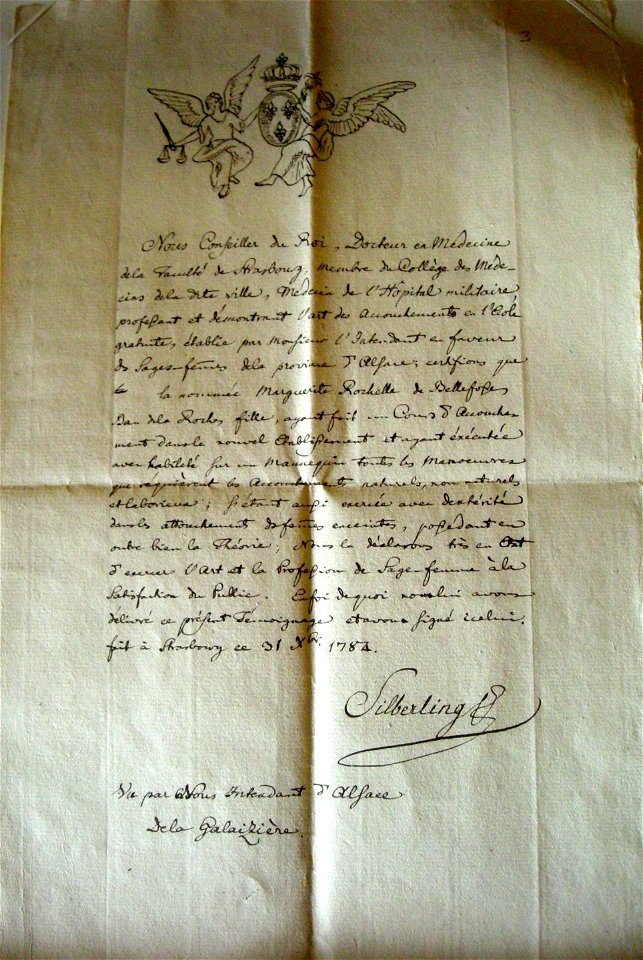 3
Nous Conseiller du Roi, Docteur en Médecine
dela Faculté de Strasbourg, membre du Collège des Méde-
cins dela dite ville, Médecin de l'Hôpital militaire,
professant et démontrant l'art des Accouchements en l'Ecole
gratuite, établie par Monsieur l'Intendant en faveur
des Sages-femmes dela province d'Alsace; certifions que
la nommée Marguerite Rochelle de Bellefosses
Ban dela Roche fille, ayant fait un Cours d'Accouche-
ment dans le nouvel Etablissement et ayant éxécutée
avec habileté sur un Mannequin toutes les Manoeuvres
que requièrent les Accouchements naturels, non naturels
et laborieux; s'étant aussi exercée avec dextérité
dans les attouchements des femmes enceintes, possédant en
outre bien la Théorie; Nous la déclarons très en Etat
d'exercer l'Art et la Profession de Sage-femme à la
Satisfaction du Public. En foi de quoi nous lui avons
délivré ce présent Témoignage et avons signé icelui.
fait à Strasbourg ce 31 Xbr. 1784.
Silberling
Vu par Nous Intendant d'Alsace
Dela Galaizière.